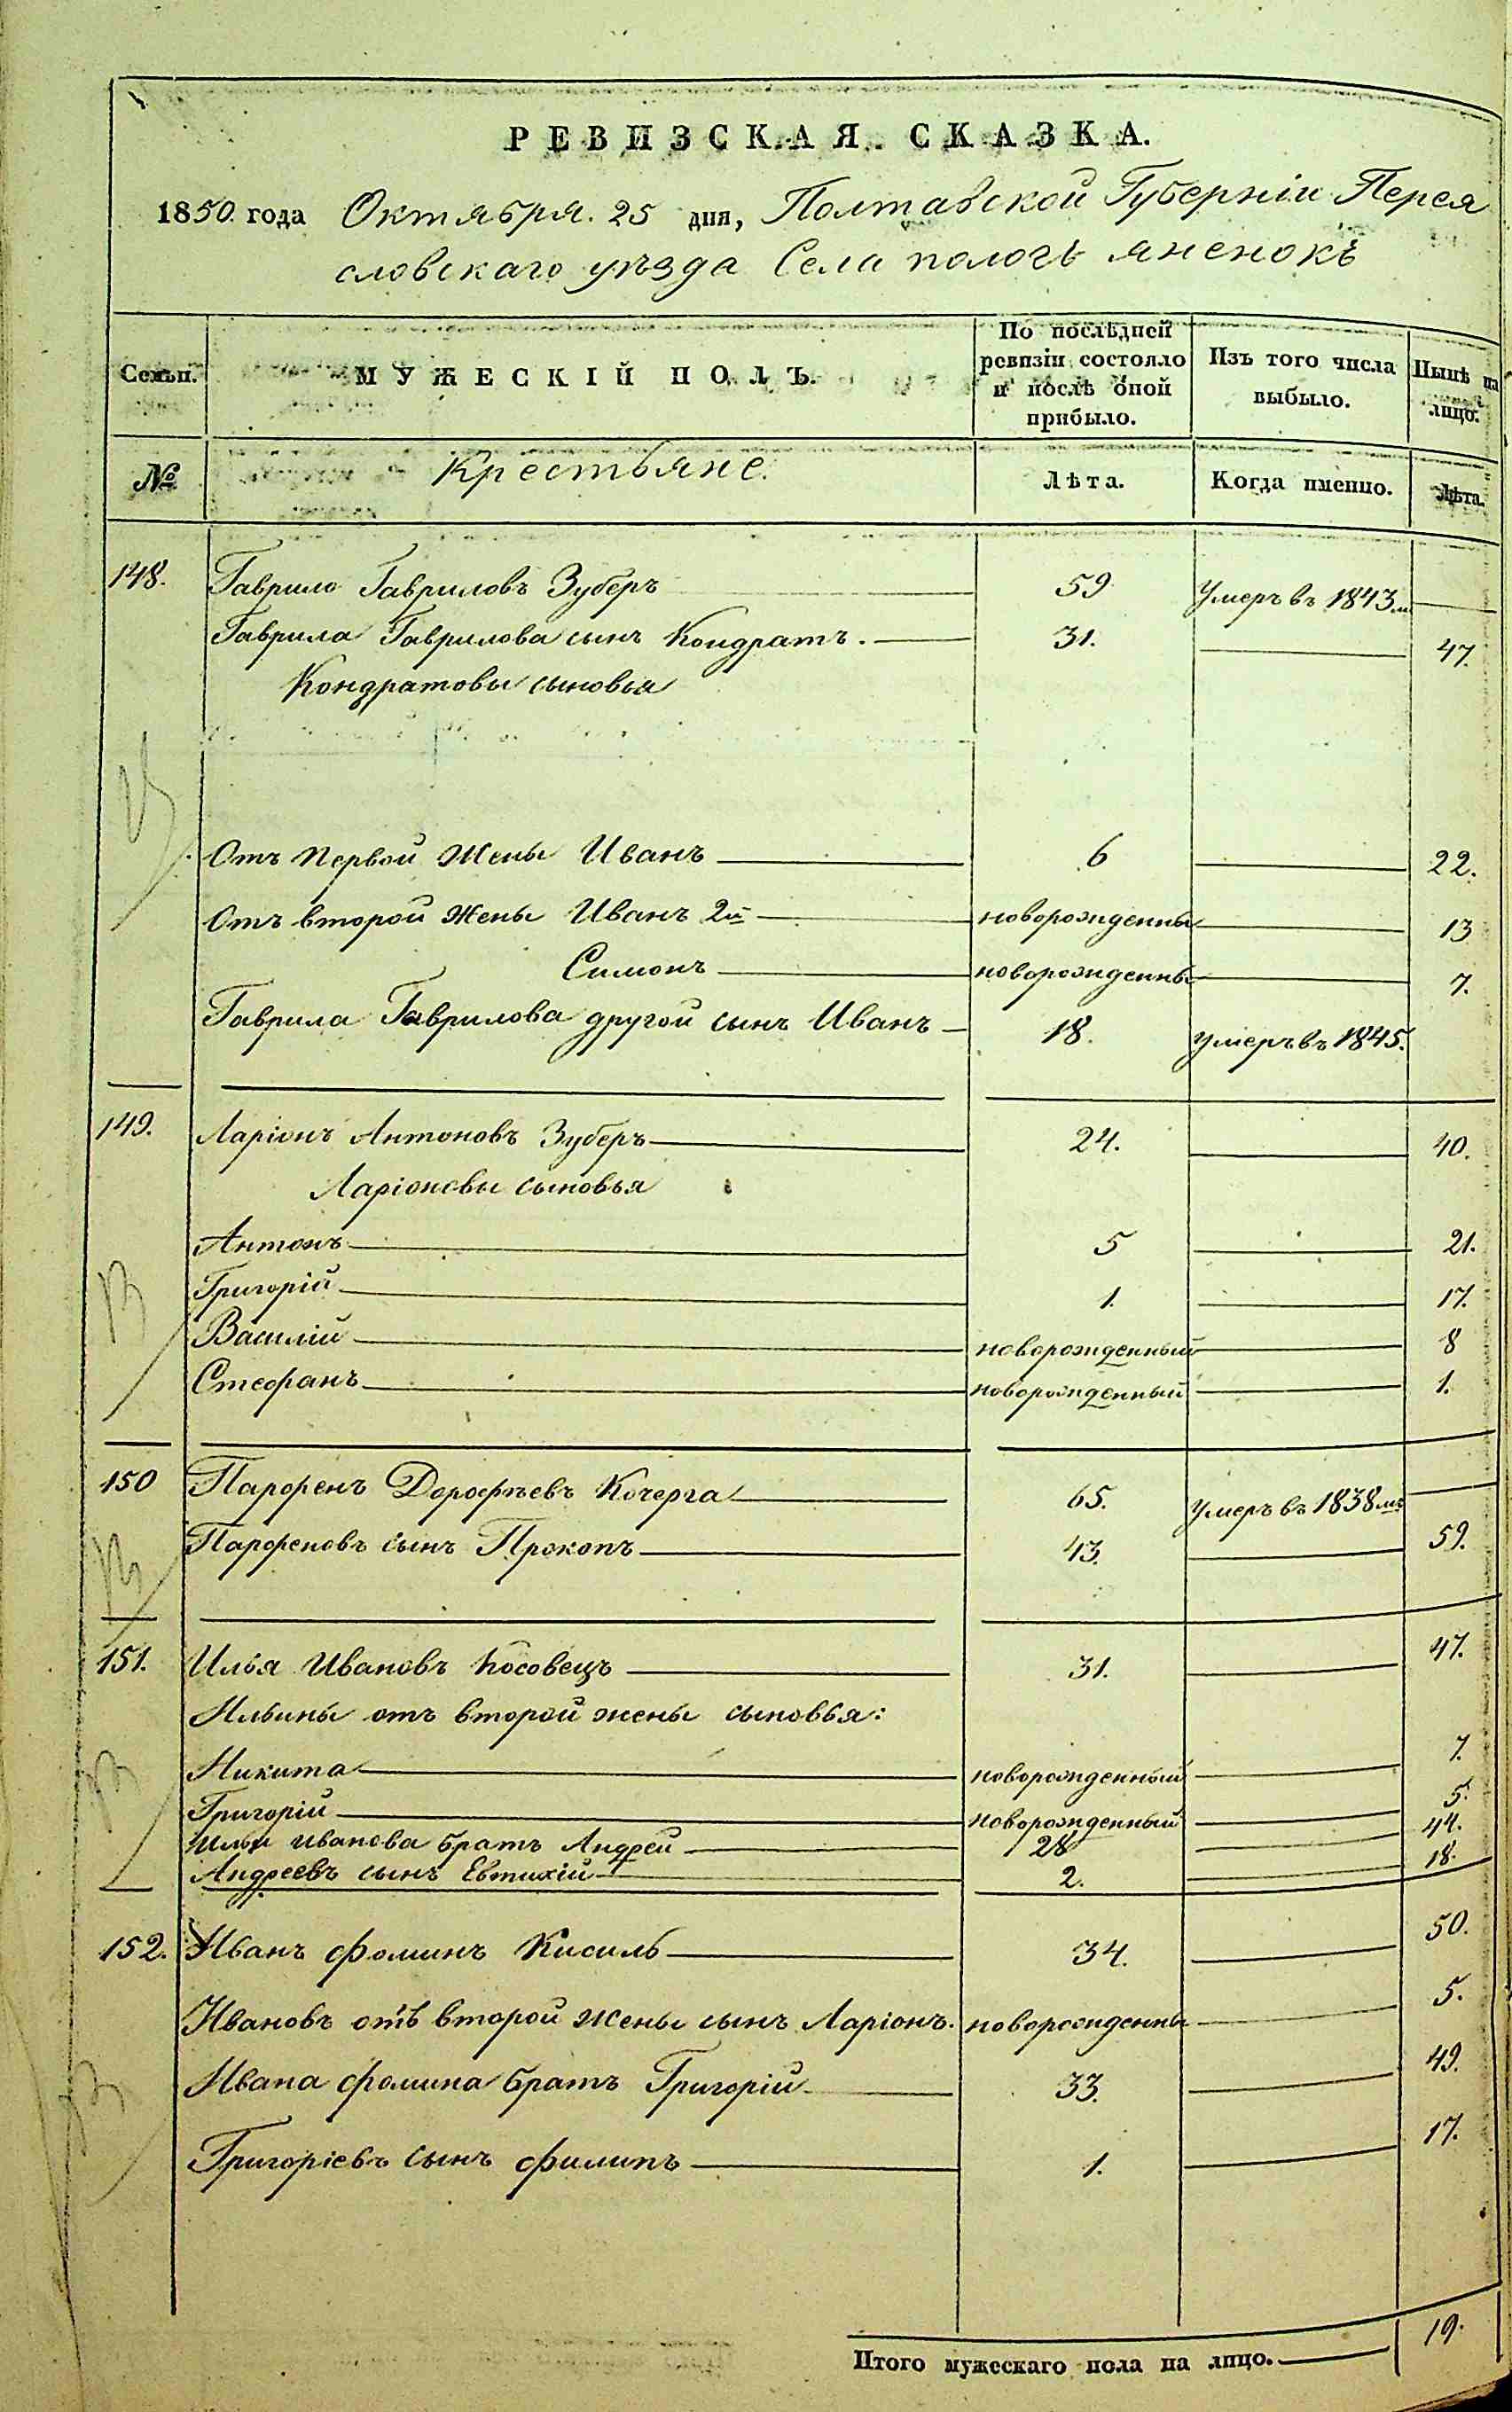 РЕВИЗСКАЯ СКАЗКА.
1850 года Октября. 25 дня, Полтавской Губерніи Перея
словскаго уѣзда Села пологъ яненокъ
Семьи. МУЖЕСКІЙ ПОЛЪ. По послѣдней ревизіи состояло и послѣ оной прибыло. Изъ того числа выбыло. Нынѣ на лицо.
№ Крестьяне. Лѣта. Когда именно. Лѣта.
148. Гаврило Гавриловъ Зуберъ 59 Умеръ въ 1843м
Гаврила Гаврилова сынъ Кондратъ. 31. 47.
Кондратовы сыновья
Отъ первой жены Иванъ 6 22.
Отъ второй жены Иванъ 2й новорожденны 13
Симонъ новорожденны 7.
Гаврила Гаврилова другой сынъ Иванъ 18. умеръ въ 1845.
149. Ларіонъ Антоновъ Зуберъ 24. 40.
Ларіоновы сыновья
Антонъ 5 21.
Григорій 1. 17.
Василій новорожденный 8
Стефанъ новорожденный 1.
150 Парфенъ Дорофѣевъ Кочерга 65. Умеръ въ 1838мъ
Парфеновъ сынъ Прокопъ 43. 59.
151. Илья Ивановъ Косовецъ 31. 47.
Ильины отъ второй жены сыновья:
Никита новорожденный 7.
Григорій новорожденный 5.
Ильи Иванова братъ Андрей 28 44.
Андреевъ сынъ Евтихій 2. 18.
152. Иванъ Фоминъ Кисиль 34. 50.
Ивановъ отъ второй жены сынъ Ларіонъ. новорожденны 5.
Ивана Фомина братъ Григорій 33. 49.
Григоріевъ сынъ Филипъ 1. 17.
Итого мужескаго пола на лицо. 19.